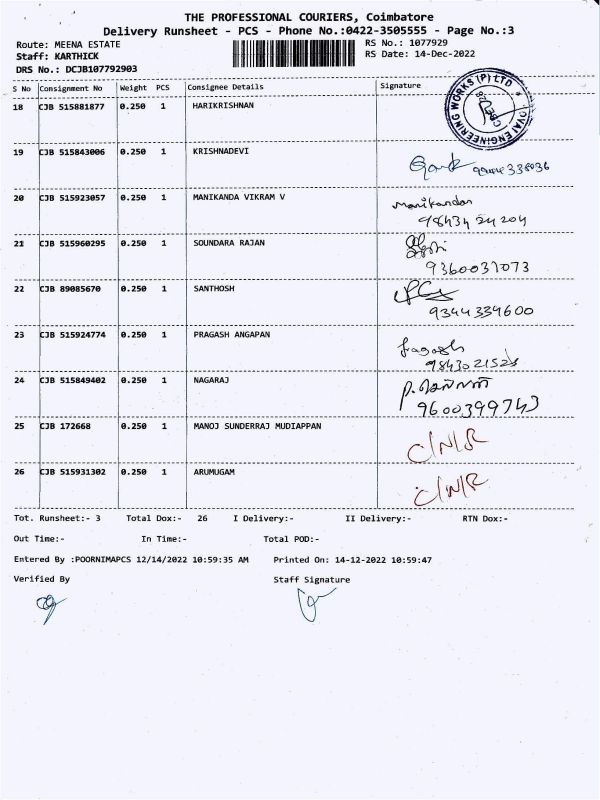 THE PROFESSIONAL COURIERS, Coimbatore
Delivery Runsheet - PCS - Phone No.:0422-3505555 - Page No.:3
Route: MEENA ESTATE RS No.: 1077929
Staff: KARTHICK RS Date: 14-Dec-2022
DRS No.: DCJB107792903
S No Consignment No Weight PCS Consignee Details Signature
18 CJB 515881877 0.250 1 HARIKRISHNAN
OVAI ENGINEERING WORKS (P) LTD
19 CJB 515843006 0.250 1 KRISHNADEVI
20 CJB 515923057 0.250 1 MANIKANDA VIKRAM V Manikandan
98434 24204
21 CJB 515960295 0.250 1 SOUNDARA RAJAN
9360031073
22 CJB 89085670 0.250 1 SANTHOSH
9344334600
23 CJB 515924774 0.250 1 PRAGASH ANGAPAN
24 CJB 515849402 0.250 1 NAGARAJ
9600399743
25 CJB 172668 0.250 1 MANOJ SUNDERRAJ MUDIAPPAN C/N/R
26 CJB 515931302 0.250 1 ARUMUGAM C/N/R
Tot. Runsheet:- 3 Total Dox:- 26 I Delivery:- II Delivery:- RTN Dox:-
Out Time:- In Time:- Total POD:-
Entered By :POORNIMAPCS 12/14/2022 10:59:35 AM Printed On: 14-12-2022 10:59:47
Verified By Staff Signature